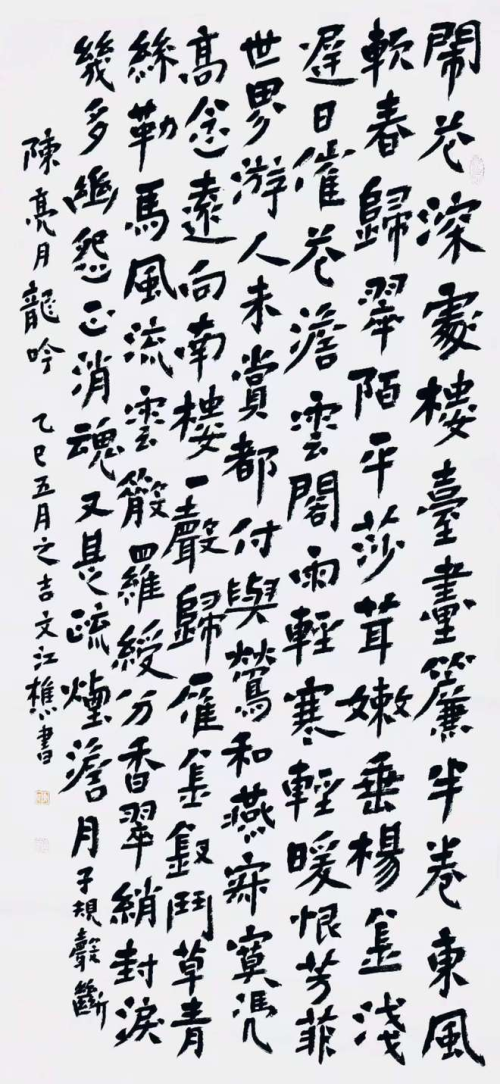 鬧花深處樓臺畫簾半卷東風
軟春歸翠陌平莎茸嫩垂楊金淺
遲日催花澹雲閣雨輕寒輕暖恨芳菲
世界游人未賞都付與鶯和燕寂寞憑
高念遠向南樓一聲歸雁金釵鬥草青
絲勒馬風流雲散羅綬分香翠綃封淚
幾多幽怨正消魂又是疏煙澹月子規聲斷
陳亮月龍吟 乙巳五月之吉文江樵書